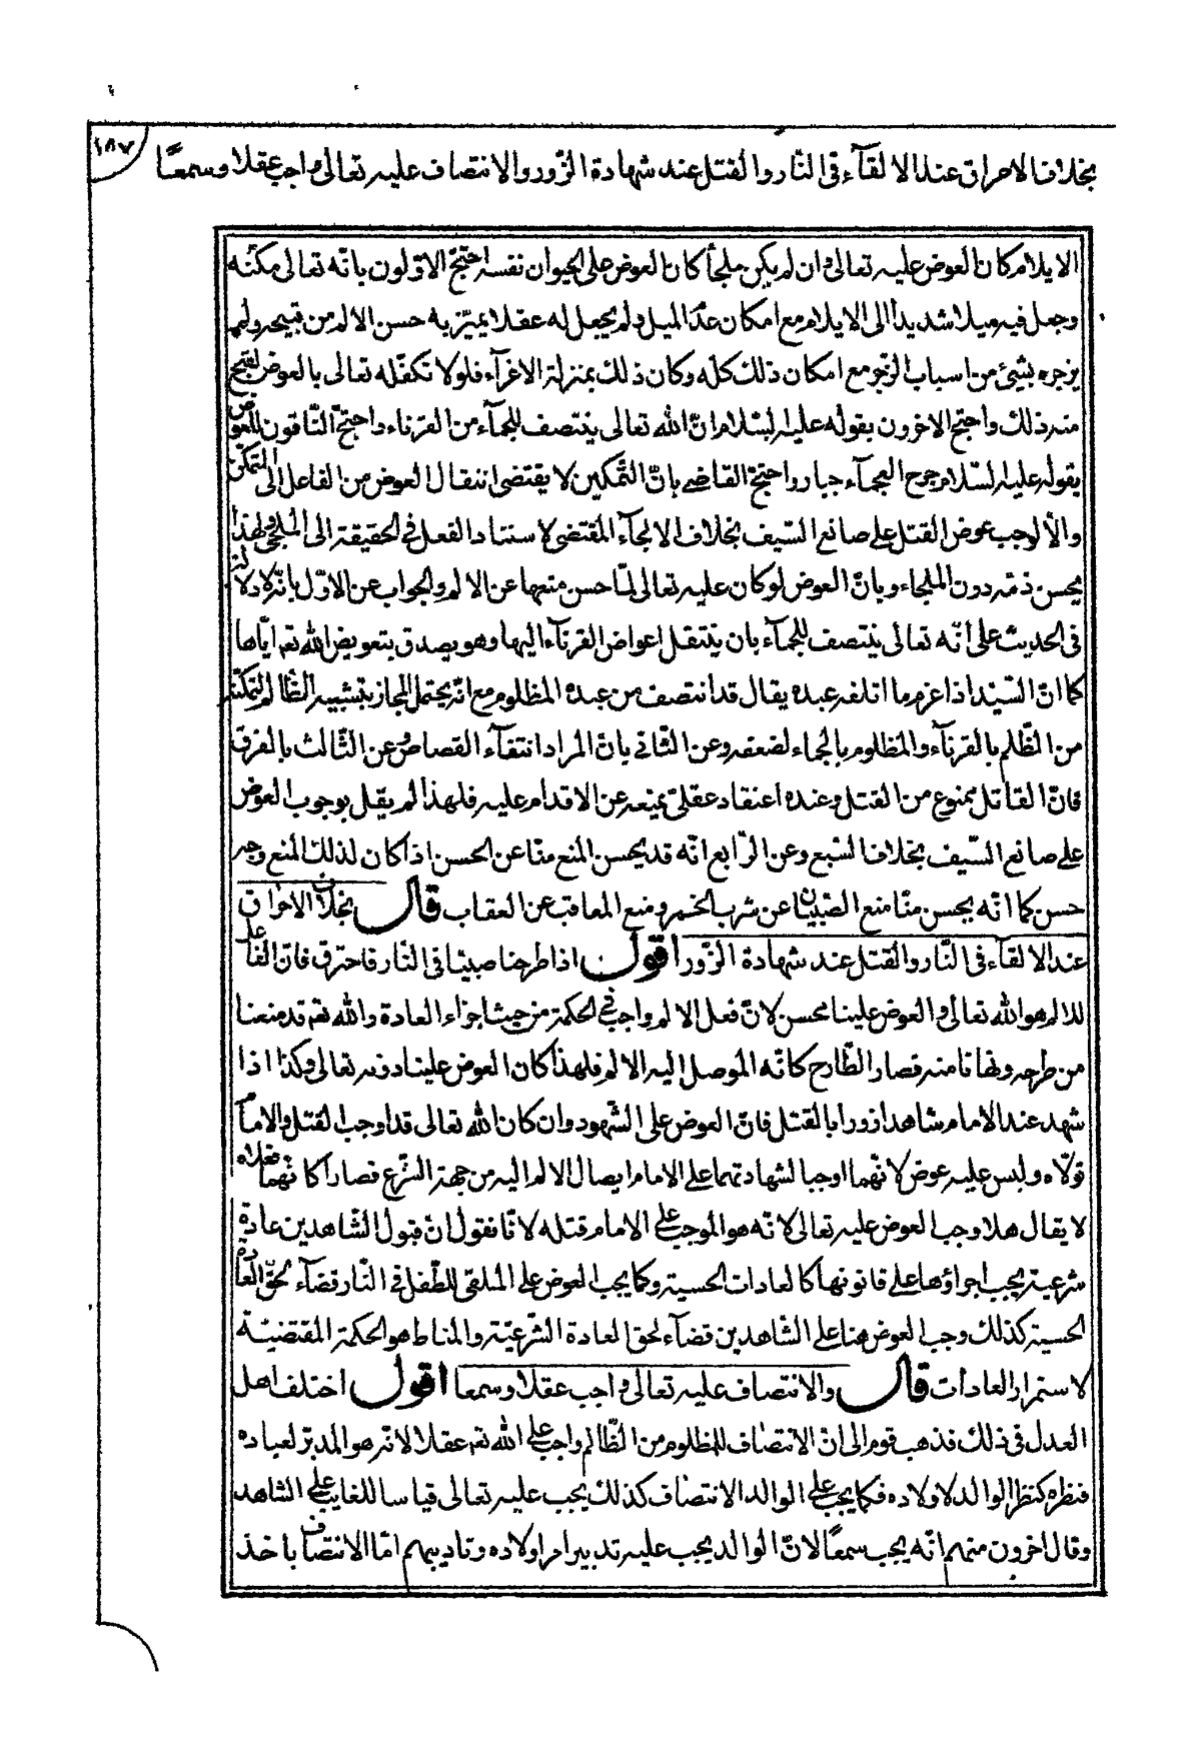 ١٨٧
بخلاف الاحراق عند الالقآء فی النّار والقتل عند شهادة الزّور والانتصاف علیه تعالی واجب عقلا وسمعًا
الایلام کان العوض علیه تعالی وان لم یکن ملجأ کان العوض علی الحیوان نفسه احتجّ الاوّلون بانّه تعالی مکّنه
وجعل فیه میلا شدیدا الی الایلام مع امکان عدم المیل ولم یجعل له عقلا یمیّز به حسن الالم من قبیحه ولم
یزجره بشیئ من اسباب الزّجر مع امکان ذلک کلّه وکان ذلک بمنزلة الاغرآء فلولا تکفّله تعالی بالعوض لقبح
منه ذلک واحتج الاخرون بقوله علیه السّلام انّ الله تعالی ینتصف للجمآء من القرناء واحتجّ النّافون للعوض
بقوله علیه السّلام جرح العجمآء جبار واحتجّ القاضی بانّ التّمکین لا یقتضی انتقال العوض من الفاعل الی التمکّن
والّا لوجب عوض القتل علی صانع السّیف بخلاف الالجآء المقتضی لاستناد الفعل فی الحقیقة الی الملجئ ولهذا
یحسن ذمّه دون الملجاء وبانّ العوض لو کان علیه تعالی لمّا حسن منعها عن الالم والجواب عن الاوّل بانّه لا دلالة
فی الحدیث علی انّه تعالی ینتصف للجمآء بان ینتقل اعواض القرنآء الیها وهو یصدق بتعویض الله تعم ایّاها
کما انّ السّیّد اذا غرم ما اتلفه عبده یقال قد انتصف من عبده المظلوم مع انّه یحتمل المجاز بتشبیه الظّالم لتمکّنه
من الظّلم بالقرنآء والمظلوم بالجماء لضعفه وعن الثّانی بانّ المراد انتفآء القصاص وعن الثّالث بالفرق
فانّ القاتل ممنوع من القتل وعنده اعتقاد عقلی یمنعه عن الاقدام علیه فلهذا لم یقل بوجوب العوض
علی صانع السّیف بخلاف السّبع وعن الرّابع انّه قد یحسن المنع منّا عن الحسن اذا کان لذلک المنع وجه
حسن کما انّه یحسن منّا منع الصّبیان عن شرب الخمر ومنع المعاقب عن العقاب قال بخلاف الاحراق
عند الالقآء فی النّار والقتل عند شهادة الزّور اقول اذا طرحنا صبیّا فی النّار فاحترق فانّ الفاعل
للالم هو الله تعالی والعوض علینا یحسن لانّ فعل الالم واجب فی الحکمة من حیث اجراء العادة والله تعم قد منعنا
من طرحه ونهانا منه فصار الطّارح کانّه الموصل الیه الالم فلهذا کان العوض علینا دونه تعالی وکذا اذا
شهد عند الامام شاهدا زور بالقتل فانّ العوض علی الشّهود وان کان الله تعالی قد اوجب القتل والامام
تولّاه ولیس علیه عوض لانّهما اوجبا لشهادتهما علی الامام ایصال الالم الیه من جهة الشّرع فصارا کانّهما فعلاه
لا یقال هلا وجب العوض علیه تعالی لانّه هو الموجب علی الامام قتله لانّا نقول انّ قبول الشّاهدین عادة
شرعیة یجب اجراؤها علی قانونها کالعادات الحسیة وکما یجب العوض علی الملقی للطّفل فی النّار قضآء لحقّ العادة
الحسیة کذلک وجب العوض هنا علی الشّاهدین قضآء لحق العادة الشّرعیّة والمناط هو الحکمة المقتضیّة
لاستمرار العادات قال والانتصاف علیه تعالی واجب عقلا وسمعا اقول اختلف اهل
العدل فی ذلک فذهب قوم الی انّ الانتصاف للمظلوم من الظّالم واجب علی الله تعم عقلا لانّه هو المدبّر لعباده
فنظره کنظر الوالد لاولاده فکما یجب علی الوالد الانتصاف کذلک یجب علیه تعالی قیاسا للغایب علی الشاهد
وقال اخرون منهم انّه یجب سمعًا لانّ الوالد یجب علیه تدبیر امر اولاده وتادیبهم امّا الانتصاف باخذ